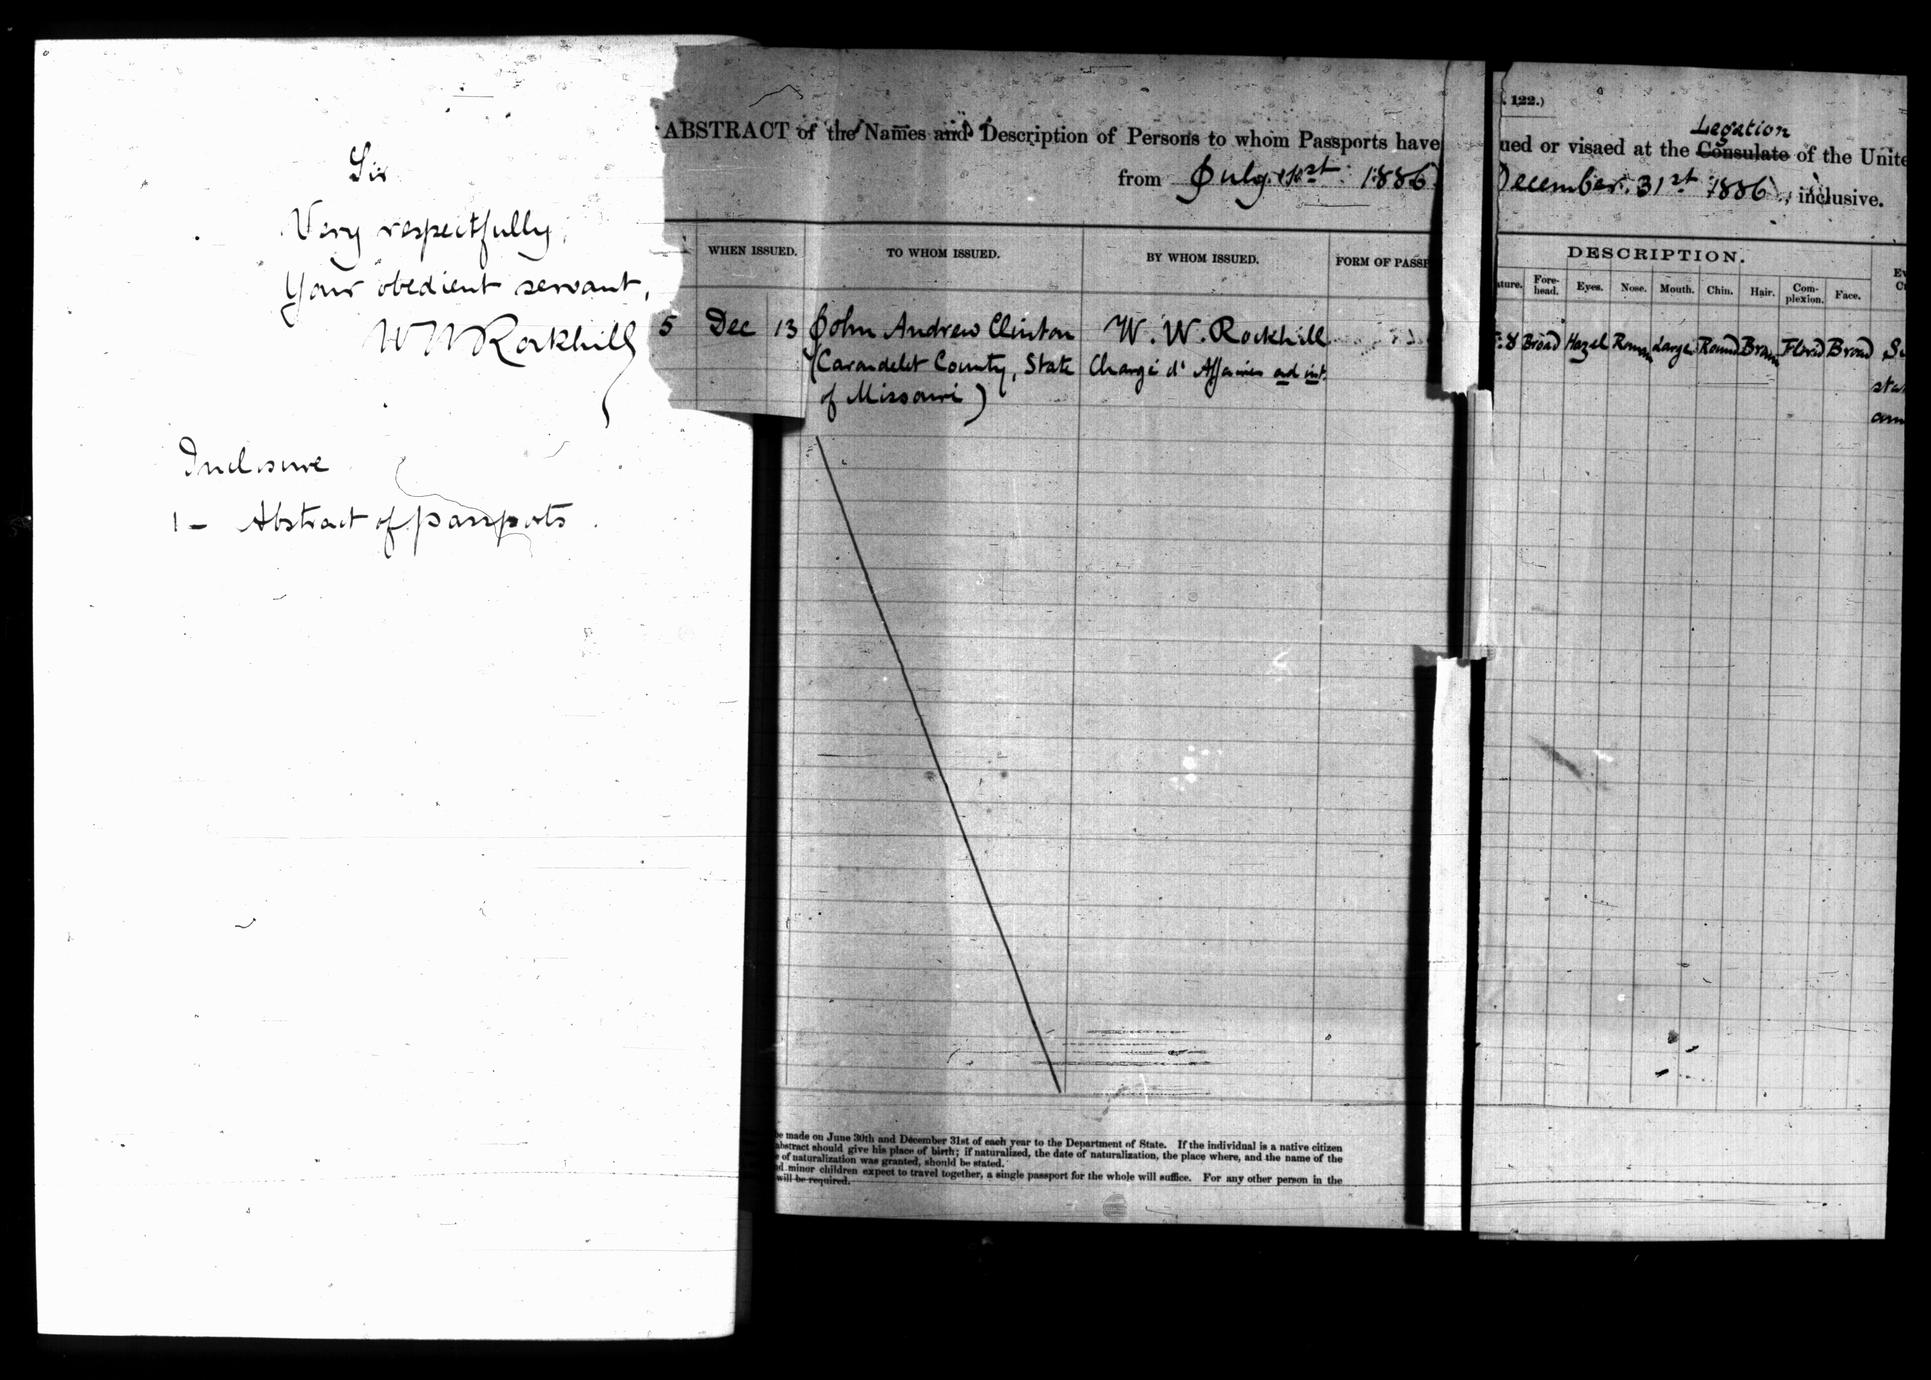 Sir
Very respectfully,
Your obedient servant,
W W Rockhill
Inclosure
1 – Abstract of passports.
ABSTRACT of the Names and Description of Persons to whom Passports have
from July 1st 1886
WHEN ISSUED.
TO WHOM ISSUED.
BY WHOM ISSUED.
FORM OF PASSP
5 Dec 13 John Andrew Clinton W. W. Rockhill
(Carondelet County, State Chargé d' Affaires ad int.
of Missouri)
be made on June 30th and December 31st of each year to the Department of State. If the individual is a native citizen
abstract should give his place of birth; if naturalized, the date of naturalization, the place where, and the name of the
of naturalization was granted, should be stated.
d minor children expect to travel together, a single passport for the whole will suffice. For any other person in the
will be required.
. 122.)
Legation
ued or visaed at the Consulate of the Unite
December 31st 1886, inclusive.
DESCRIPTION.
ature. Fore-head. Eyes. Nose. Mouth. Chin. Hair. Com-plexion. Face.
8 Broad Hazel Roman Large Round Brown Florid Broad